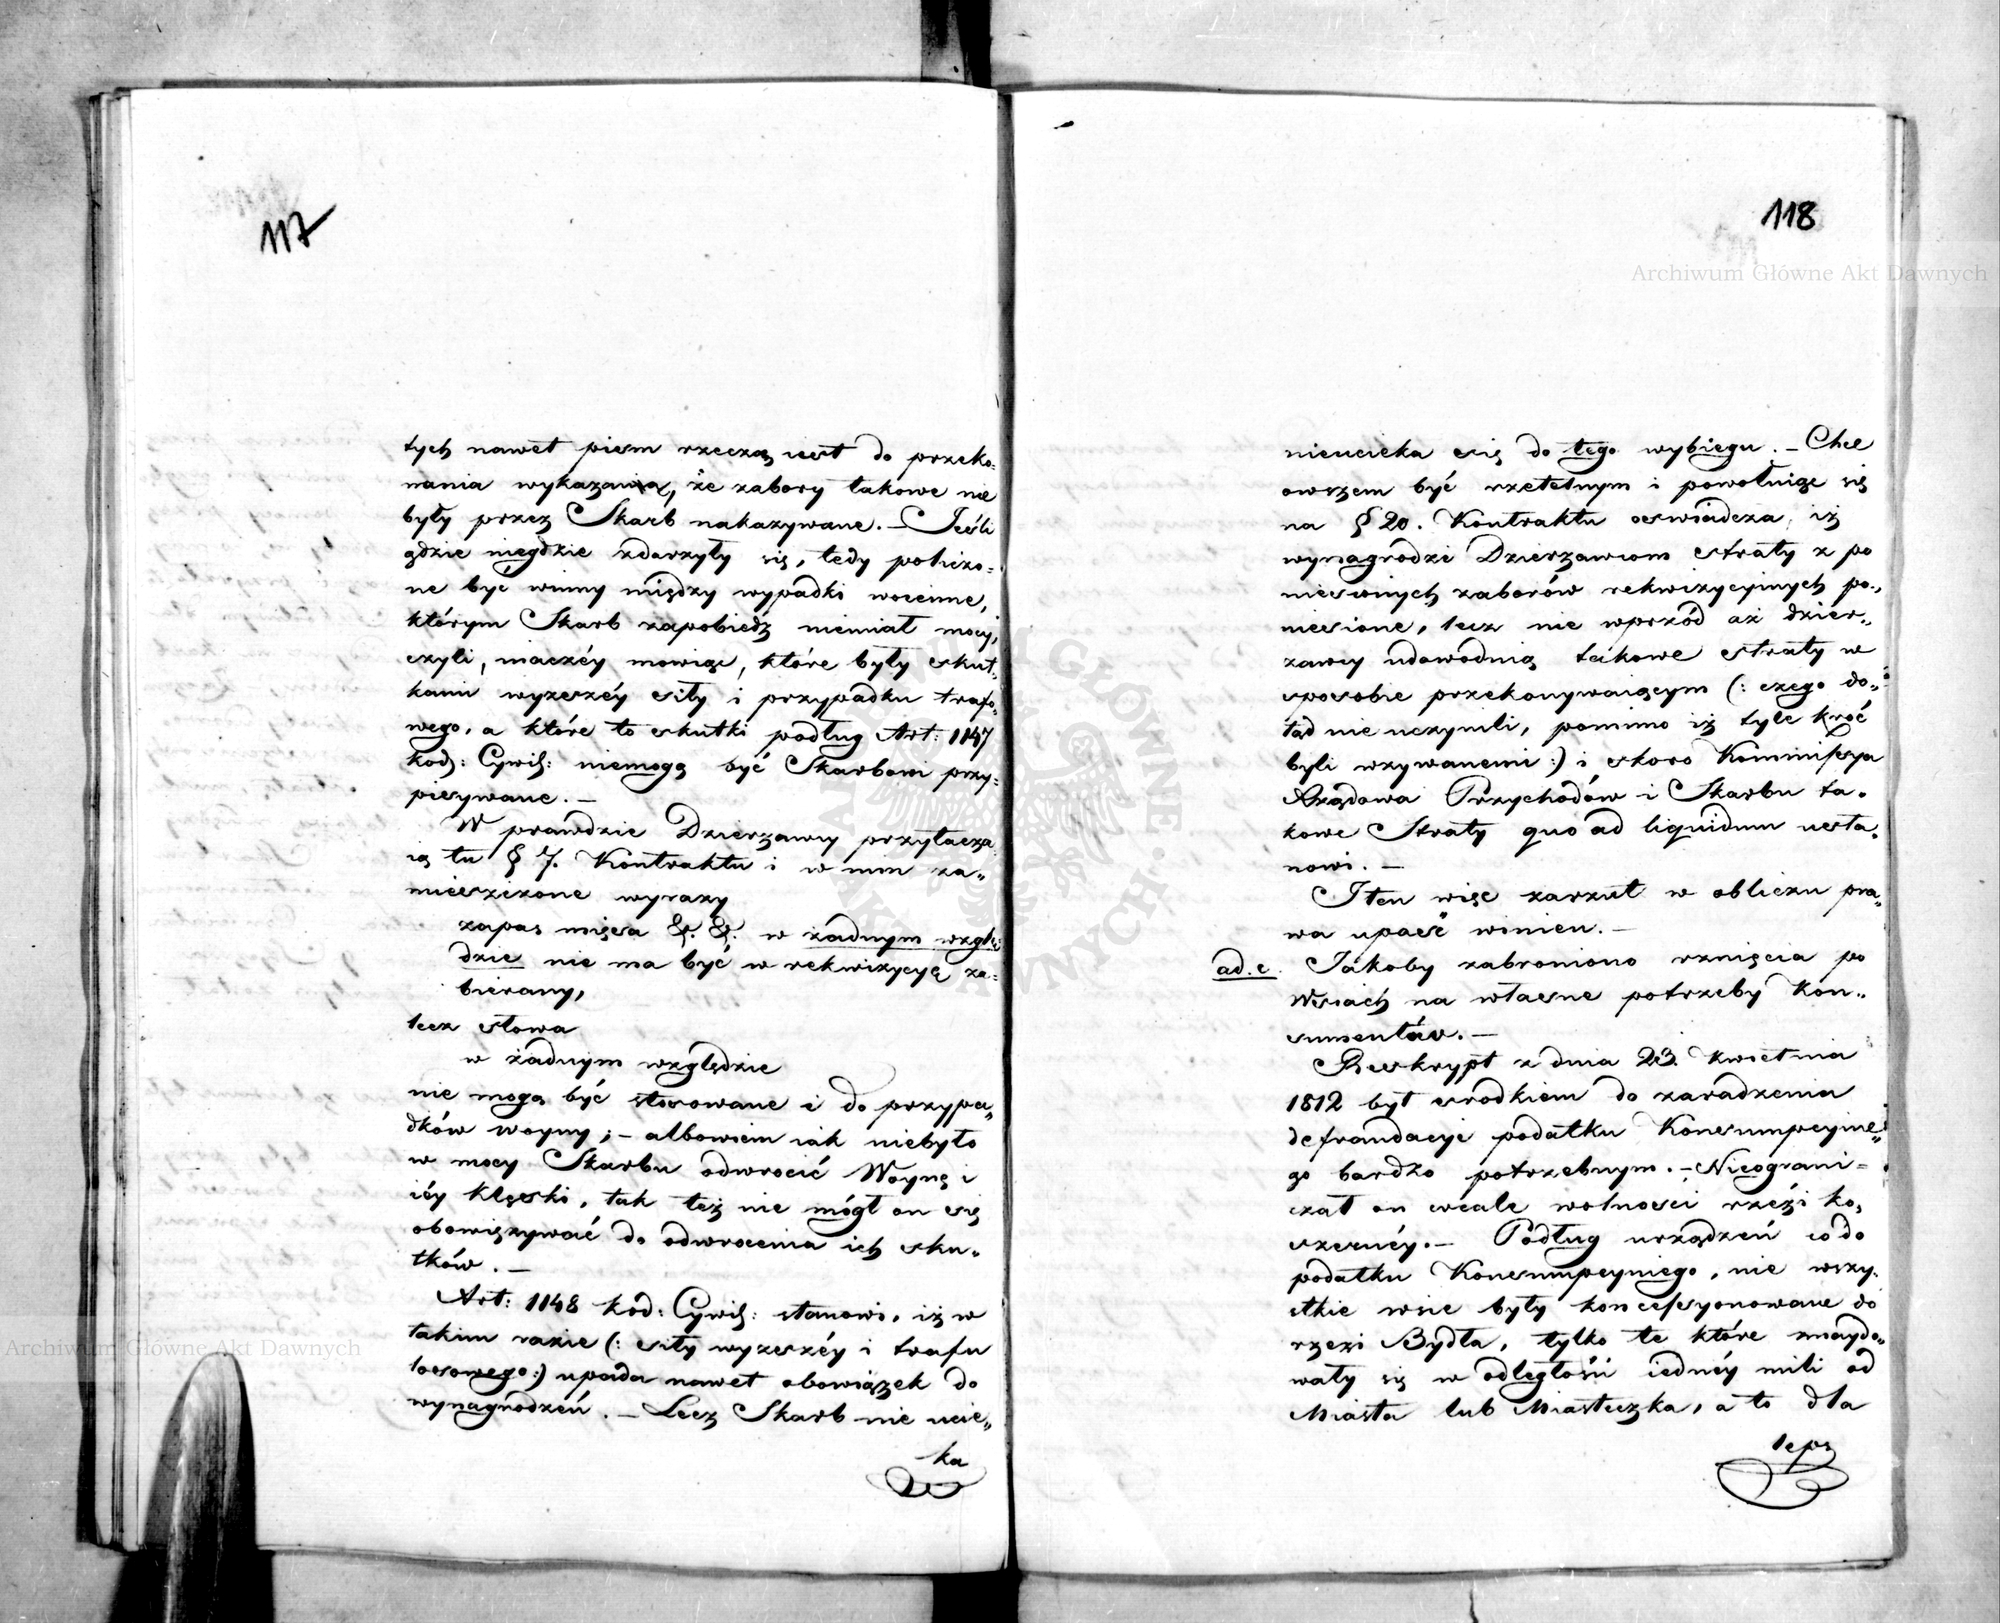 117
tych nawet pism rzeczą iest do przeko-
nania wykazania, że zabory takowe nie
były przez Skarb nakazywane. — Jeśli
gdzie niegdzie zdarzyły się, tedy policzo-
ne być winny między wypadki woienne,
którym Skarb zapobiedz niemiał mocy,
czyli, inaczéy mowiąc, które były skut-
kami wyższéy siły i przypadku trafo-
wego, a które to skutki podług Art: 1147
kod: Cywil: niemogą być Skarbowi przy-
pisywane. —
W prawdzie Dzierzawcy przytacza
ią tu § 7. Kontraktu i w nim za-
mieszczone wyrazy
zapas mięsa &. &. w żadnym wzglę-
dzie nie ma być w rekwizycyę za-
bierany,
lecz słowa
w żadnym względzie
nie mogą być stosowane i do przypa-
dków woyny; — albowiem iak niebyło
w mocy Skarbu odwrocić Woynę i
iéy klęski, tak też nie mógł on się
obowiązywać do odwrocenia ich sku-
tków. —
Art: 1148 kod: Cywil: stanowi, iż w
takim razie (: siły wyższéy i trafu
losowego:) upada nawet obowiązek do
wynagrodzeń. — Lecz Skarb nie ucie-
ka
118
Archiwum Główne Akt Dawnych
nieucieka się do tego wybiegu. — Chce
owszem być rzetelnym i powołuiąc się
na § 20. Kontraktu oswiadcza, iż
wynagrodzi Dzierzawcom straty z po
niesionych zaborów rekwizycyinych po-
niesione, lecz nie wprzód aż dzier-
zawcy udowodnią takowe straty w
sposobie przekonywaiącym (: czego do-
tąd nie uczynili, pomimo iż tyle kroć
byli wzywanemi :) i skoro Kommissya
Rządowa Przychodów i Skarbu ta-
kowe Straty quo ad liquidum usta-
nowi. —
I ten więc zarzut w obliczu pra-
wa upaść winien. —
ad. c. Jakoby zabroniono rznięcia po
Wsiach na własne potrzeby Kon-
sumentów. —
Reskrypt z dnia 23. Kwietnia
1812 był srodkiem do zaradzenia
defraudacyi podatku Konsumpcyine-
go bardzo potrzebnym. — Nieograni-
czał on wcale wolności rzézi ko-
szernéy. — Podług urządzeń co do
podatku Konsumpcyinego, nie wszy-
stkie wsie były koncessyonowane do
rzezi Bydła, tylko te które znaydo-
wały się w odległości iednéy mili od
Miasta lub Miasteczka, a to dla
lepsz
Archiwum Główne Akt Dawnych